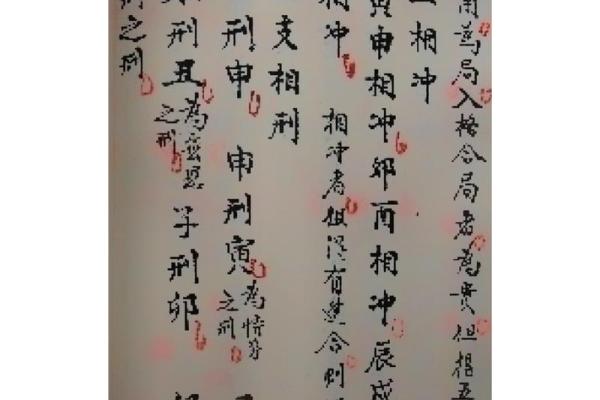 為局入格合局者為貴但
相冲
寅申相冲卯酉相冲辰戌
相冲 相冲者但有合則
支相刑
刑申 申刑寅為恃勢之刑
刑丑為無恩之刑 子刑卯
之刑